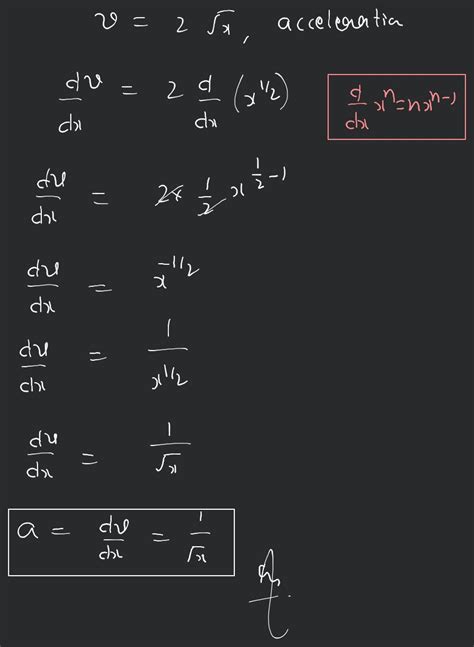 v = 2 √x, acceleration
dv/dx = 2 d/dx (x^1/2)
d/dx x^n = n x^n-1
dv/dx = 2 × 1/2 x^1/2 - 1
dv/dx = x^-1/2
dv/dx = 1/x^1/2
dv/dx = 1/√x
a = dv/dx = 1/√x